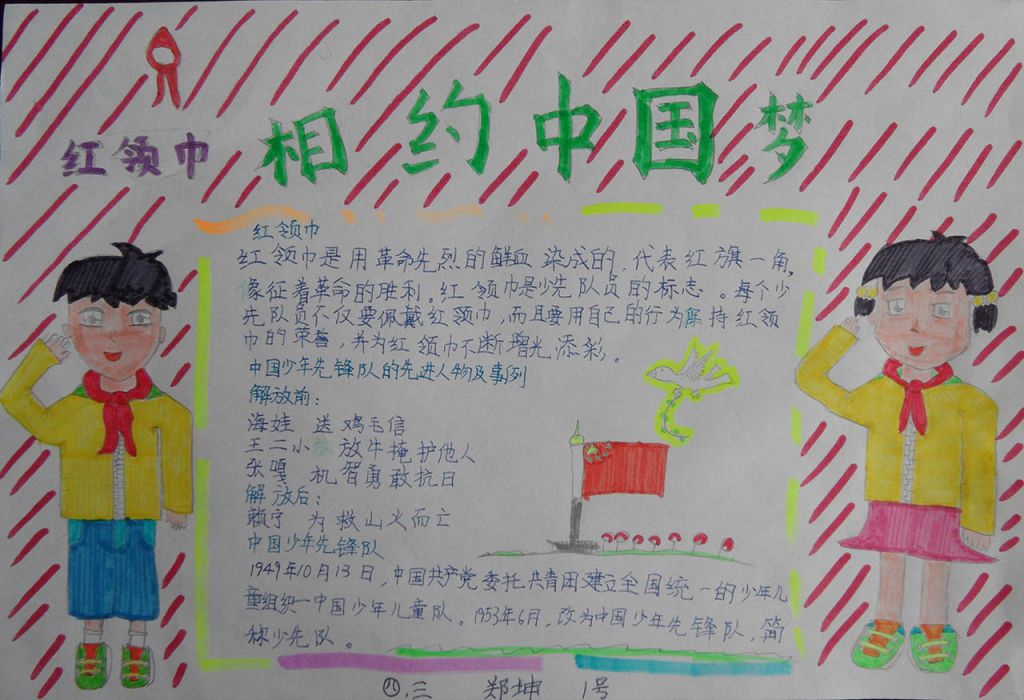 红领巾 相约中国梦
红领巾
红领巾是用革命先烈的鲜血染成的,代表红旗一角,
像征着革命的胜利。红领巾是少先队员的标志。每个少
先队员不仅要佩戴红领巾,而且要用自己的行为保持红领
巾的荣誉,并为红领巾不断增光添彩。
中国少年先锋队的先进人物及事例
解放前:
海娃 送鸡毛信
王二小 放牛掩护他人
张嘎 机智勇敢抗日
解放后:
赖宁 为救山火而亡
中国少年先锋队
1949年10月13日,中国共产党委托共青团建立全国统一的少年儿
童组织—中国少年儿童队。1953年6月,改为中国少年先锋队,简
称少先队。
八.三 郑坤 1号